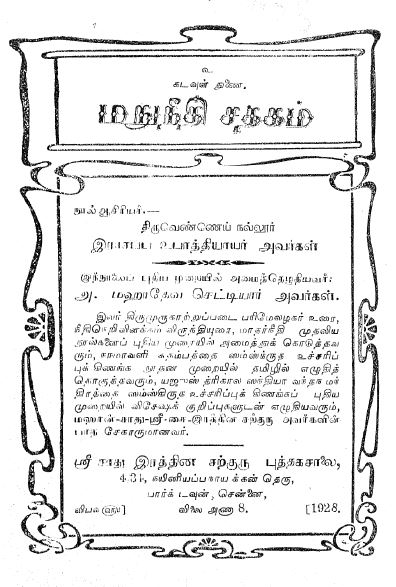 உ
கடவுள் துணை.
மநுநீதி சதகம்
நூல் ஆசிரியர்.—
திருவெண்ணெய் நல்லூர்
இராமப்ப உபாத்தியாயர் அவர்கள்
இந்நூலைப் புதிய முறையில் அமைத்தெழுதியவர்:
அ. மஹாதேவ செட்டியார் அவர்கள்.
இவர் திருமுருகாற்றுப்படை பரிமேலழகர் உரை,
நீதிநெறிவிளக்கம் விருத்தியுரை, மாதர்நீதி முதலிய
நூல்களைப் புதிய முறையில் அமைத்துக் கொடுத்தவ
ரும், ஸம்ஸ்க்ருத உச்சரிப்
புக் கிணங்க நூதன முறையில் தமிழில் எழுதித்
தொகுத்தவரும், யஜுஸ் த்ரிகால ஸந்தியா வந்தந மந்
திரத்தை ஸம்ஸ்கிருத உச்சரிப்புக் கிணங்கப் புதிய
முறையில் விசேஷக் குறிப்புகளுடன் எழுதியவரும்,
மஹான்-சாது-ஸ்ரீ-இரத்தின சற்குரு அவர்களின்
பாத சேகரருமானவர்.
ஸ்ரீ சாது இரத்தின சற்குரு புத்தகசாலை,
4,31, வெங்கடாசல நாயக்கன் தெரு,
பார்க் டவுன், சென்னை,
விபவ விலை அணா 8. [1928.